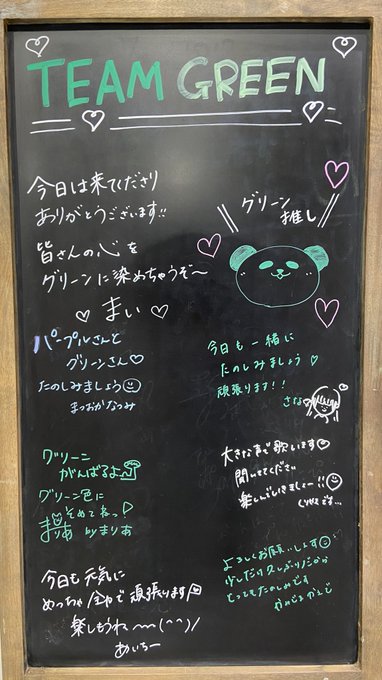 TEAM GREEN
今日は来てくださり
ありがとうございます!!
皆さんの心を
グリーンに染めちゃうぞ〜
♡ まい ♡
グリーン
推し
パープルさんと
グリーンさん♡
たのしみましょう
まつおかなつみ
今日も一緒に
たのしみましょう♡
頑張ります!!
さな
グリーン
がんばるよ
グリーン色に
そめてねっ
まりあ byまりあ
大きな声で歌います♡
聞いてください
楽しんでいきましょー!!
今日も元気に
めっちゃ全力で頑張ります
楽しもうね〜(^^)/
あいちー
よろしくお願いします
とってもたのしみです